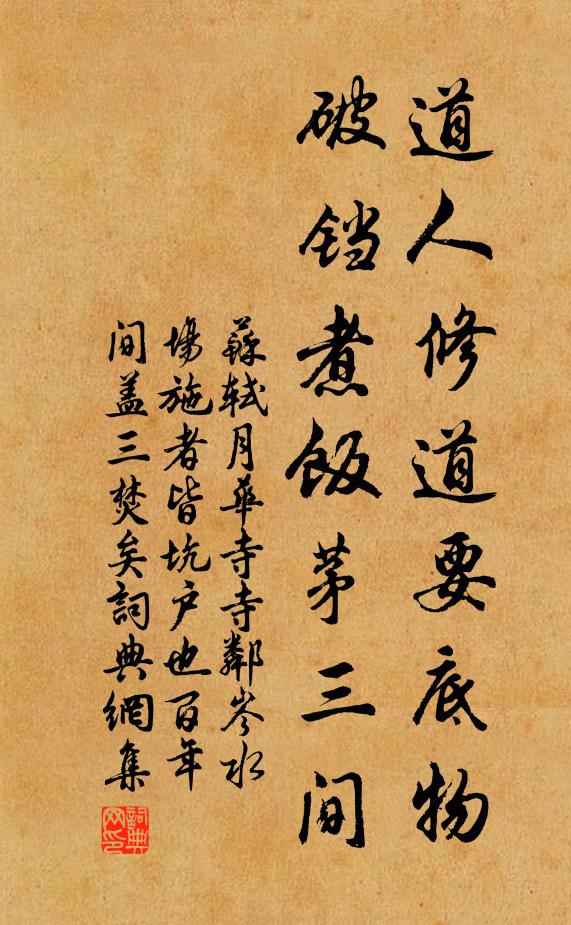 道人修道要底物
破铛煮饭茅三间
蘇軾月華寺寺鄰岑水
場施者皆坑户也百年
间盖三焚矣詞典網集
詞典网印